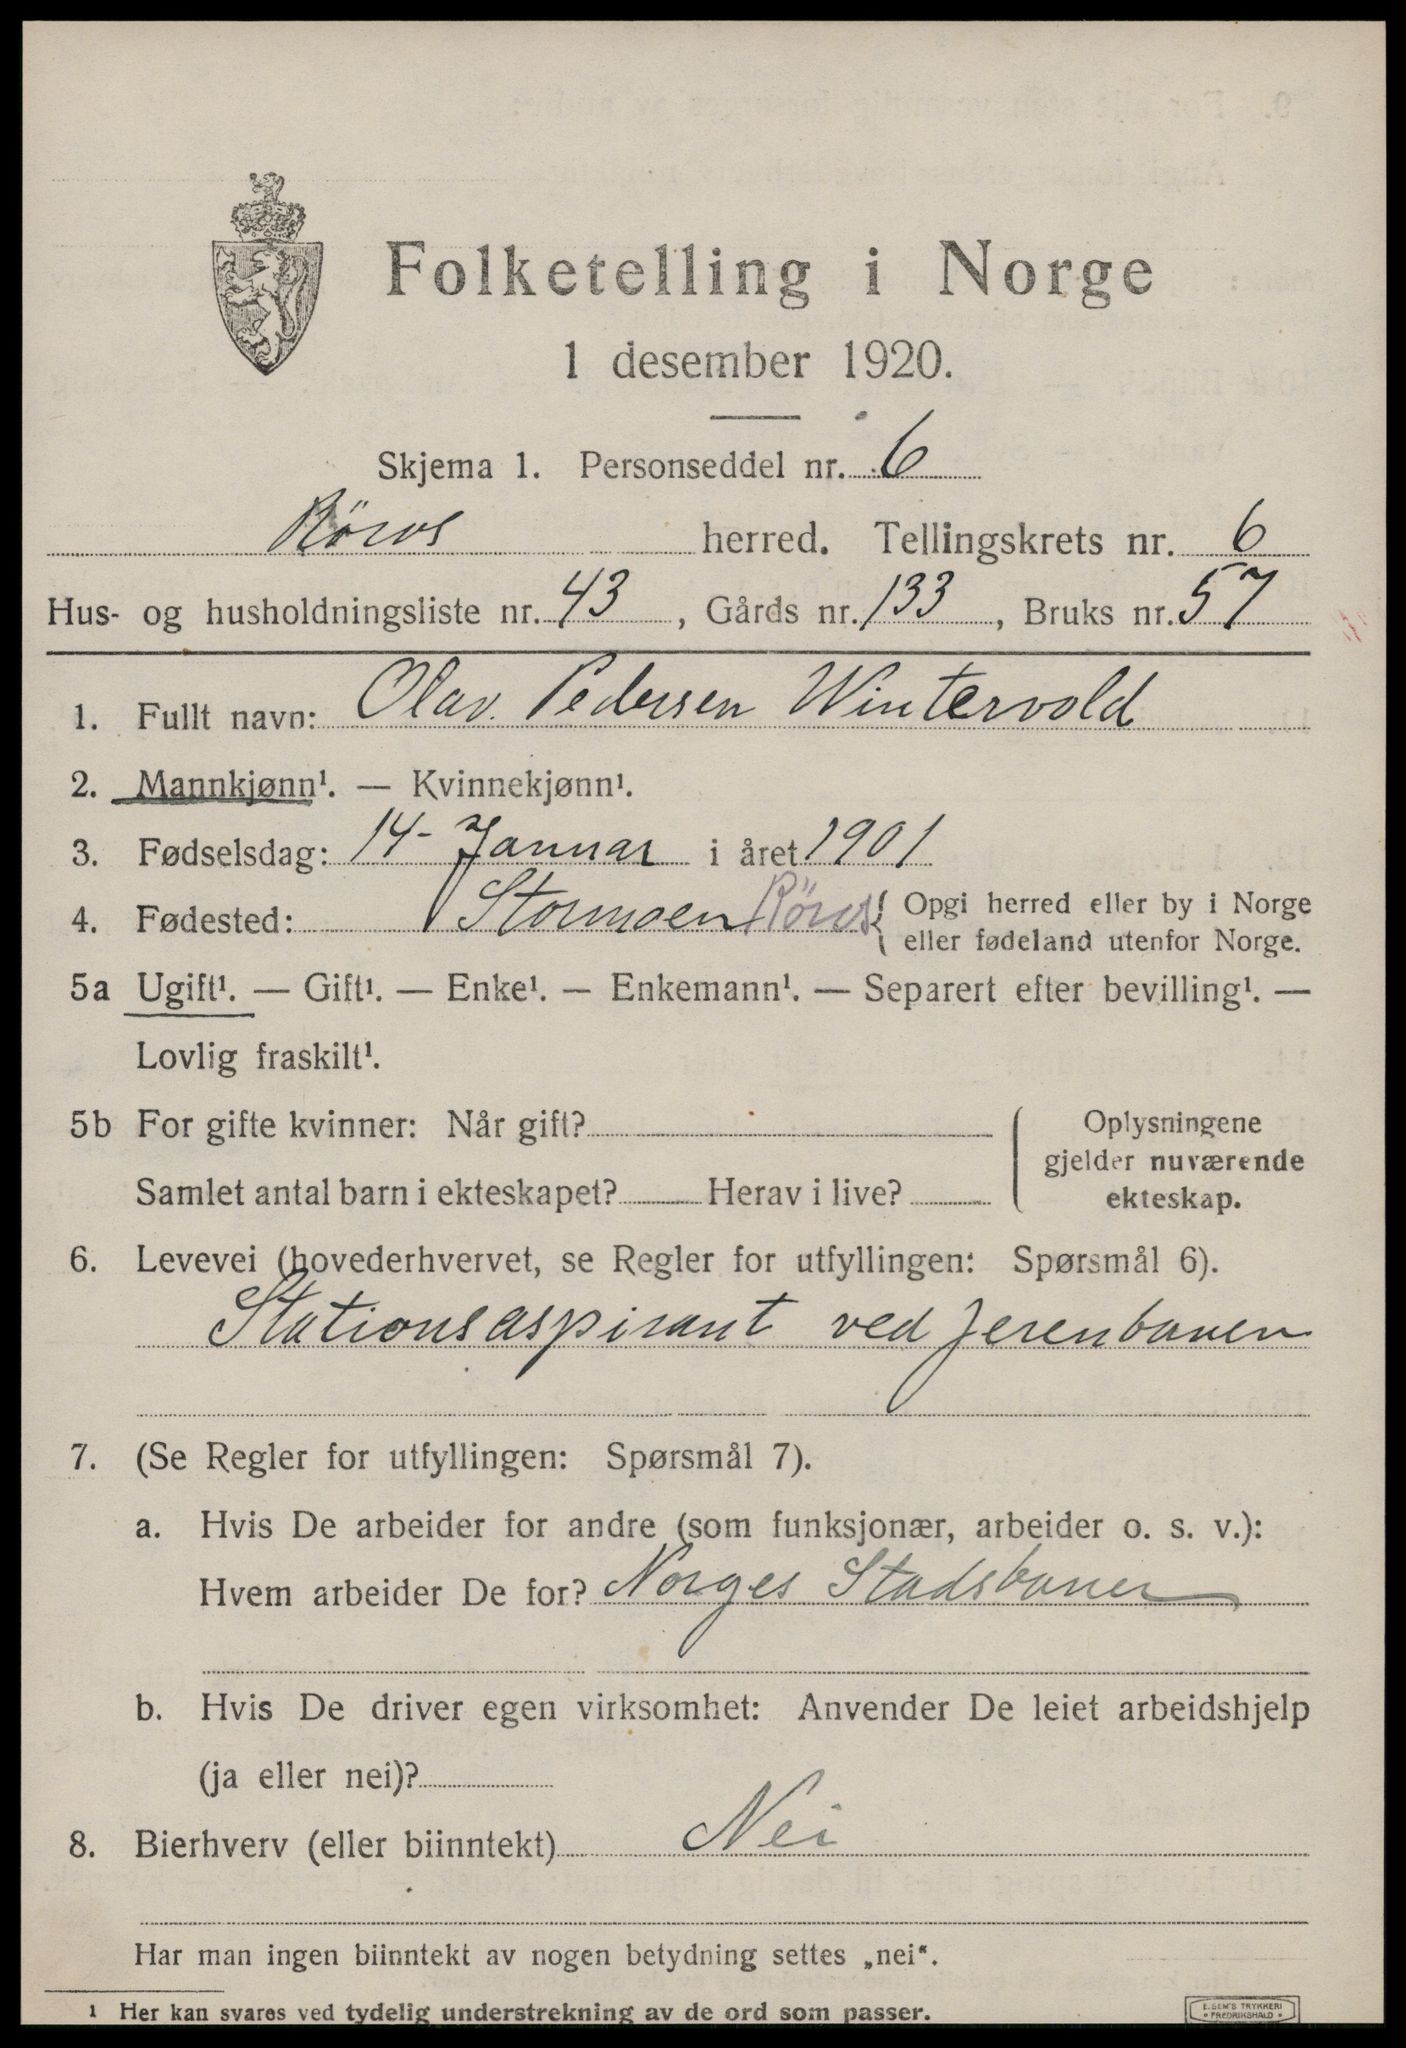 Folketelling i Norge
1 desember 1920.
Skjema 1. Personseddel nr. 6
Röros herred. Tellingskrets nr. 6
Hus- og husholdningsliste nr. 43, Gårds nr. 133, Bruks nr. 57
1. Fullt navn: Olav. Pedersen Wintervold
2. Mannkjønn¹. — Kvinnekjønn¹.
3. Fødselsdag: 14- Januar i året 1901
4. Fødested: Stormoen Röros { Opgi herred eller by i Norge
eller fødeland utenfor Norge.
5a Ugift¹. — Gift¹. — Enke¹. — Enkemann¹. — Separert efter bevilling¹. —
Lovlig fraskilt¹.
5b For gifte kvinner: Når gift?
Samlet antal barn i ekteskapet? Herav i live?
Oplysningene
gjelder nuværende
ekteskap.
6. Levevei (hovederhvervet, se Regler for utfyllingen: Spørsmål 6).
Stationsaspirant ved Jerenbanen
7. (Se Regler for utfyllingen: Spørsmål 7).
a. Hvis De arbeider for andre (som funksjonær, arbeider o. s. v.):
Hvem arbeider De for? Norges Stadsbaner
b. Hvis De driver egen virksomhet: Anvender De leiet arbeidshjelp
(ja eller nei)?
8. Bierhverv (eller biinntekt) Nei
Har man ingen biinntekt av nogen betydning settes „nei“.
1 Her kan svares ved tydelig understrekning av de ord som passer.
E. SEM'S TRYKKERI
• FREDRIKSHALD •